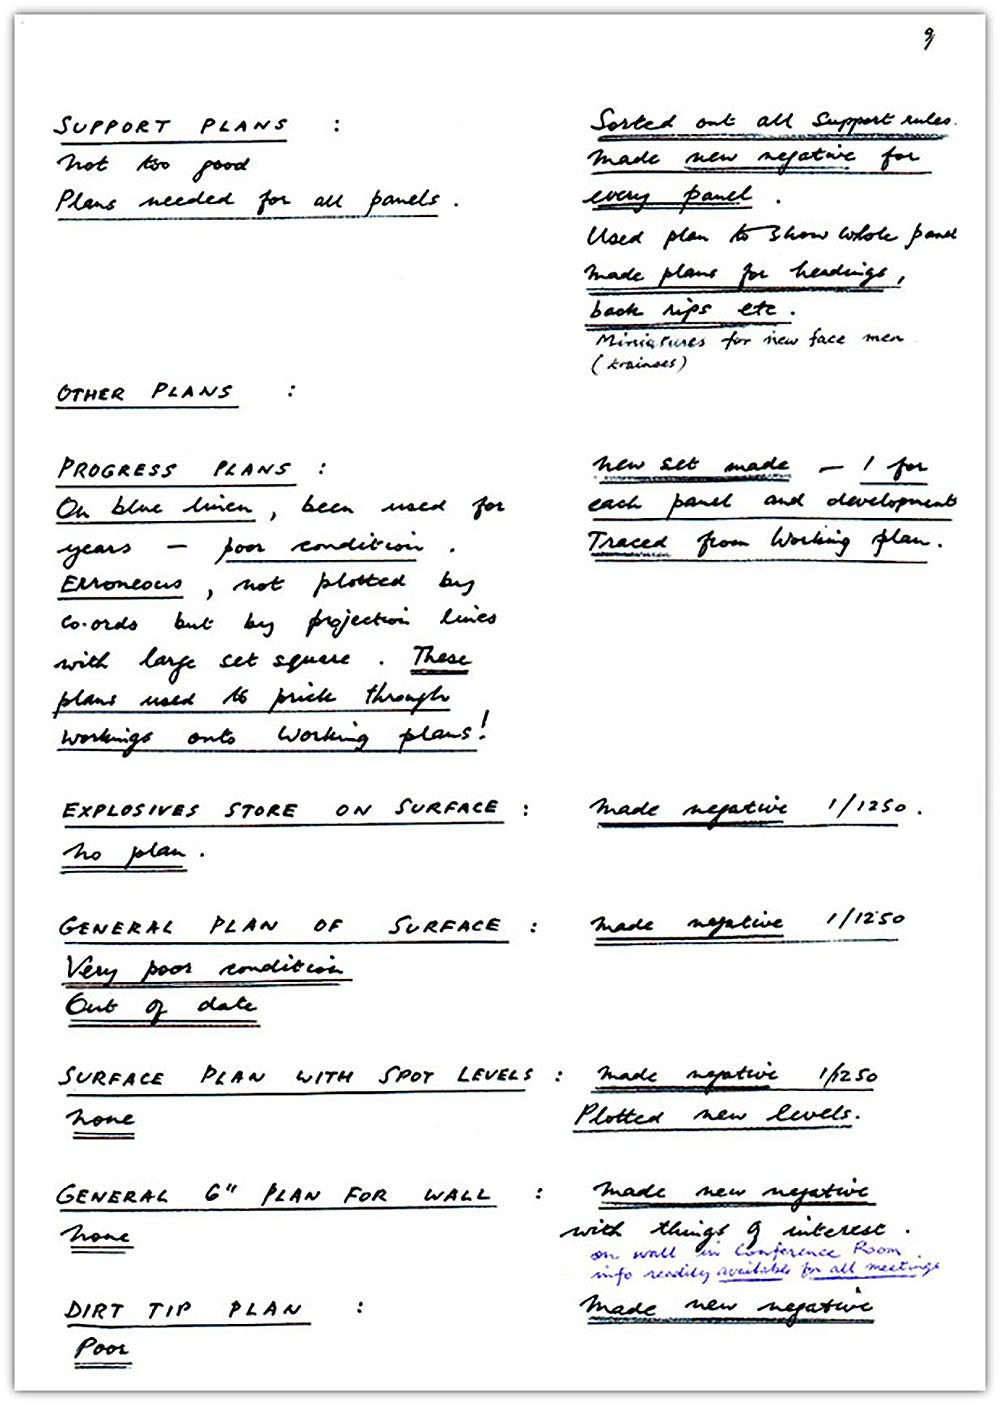 9
SUPPORT PLANS :
Not too good
Plans needed for all panels.
Sorted out all support rules.
Made new negative for
every panel.
Used plan to show whole panel
Made plans for headings,
back rips etc.
Miniatures for new face men
(trainees)
OTHER PLANS :
PROGRESS PLANS :
On blue linen, been used for
years — poor condition.
Erroneous, not plotted by
co-ords but by projection lines
with large set square. These
plans used to prick through
workings onto Working plans!
New set made — 1 for
each panel and development
Traced from Working plan.
EXPLOSIVES STORE ON SURFACE :
No plan.
Made negative 1/1250.
GENERAL PLAN OF SURFACE :
Very poor condition
Out of date
Made negative 1/1250
SURFACE PLAN WITH SPOT LEVELS :
None
Made negative 1/1250
Plotted new levels.
GENERAL 6" PLAN FOR WALL :
None
Made new negative
with things of interest.
on wall in Conference Room
info readily available for all meetings
DIRT TIP PLAN :
Poor
Made new negative